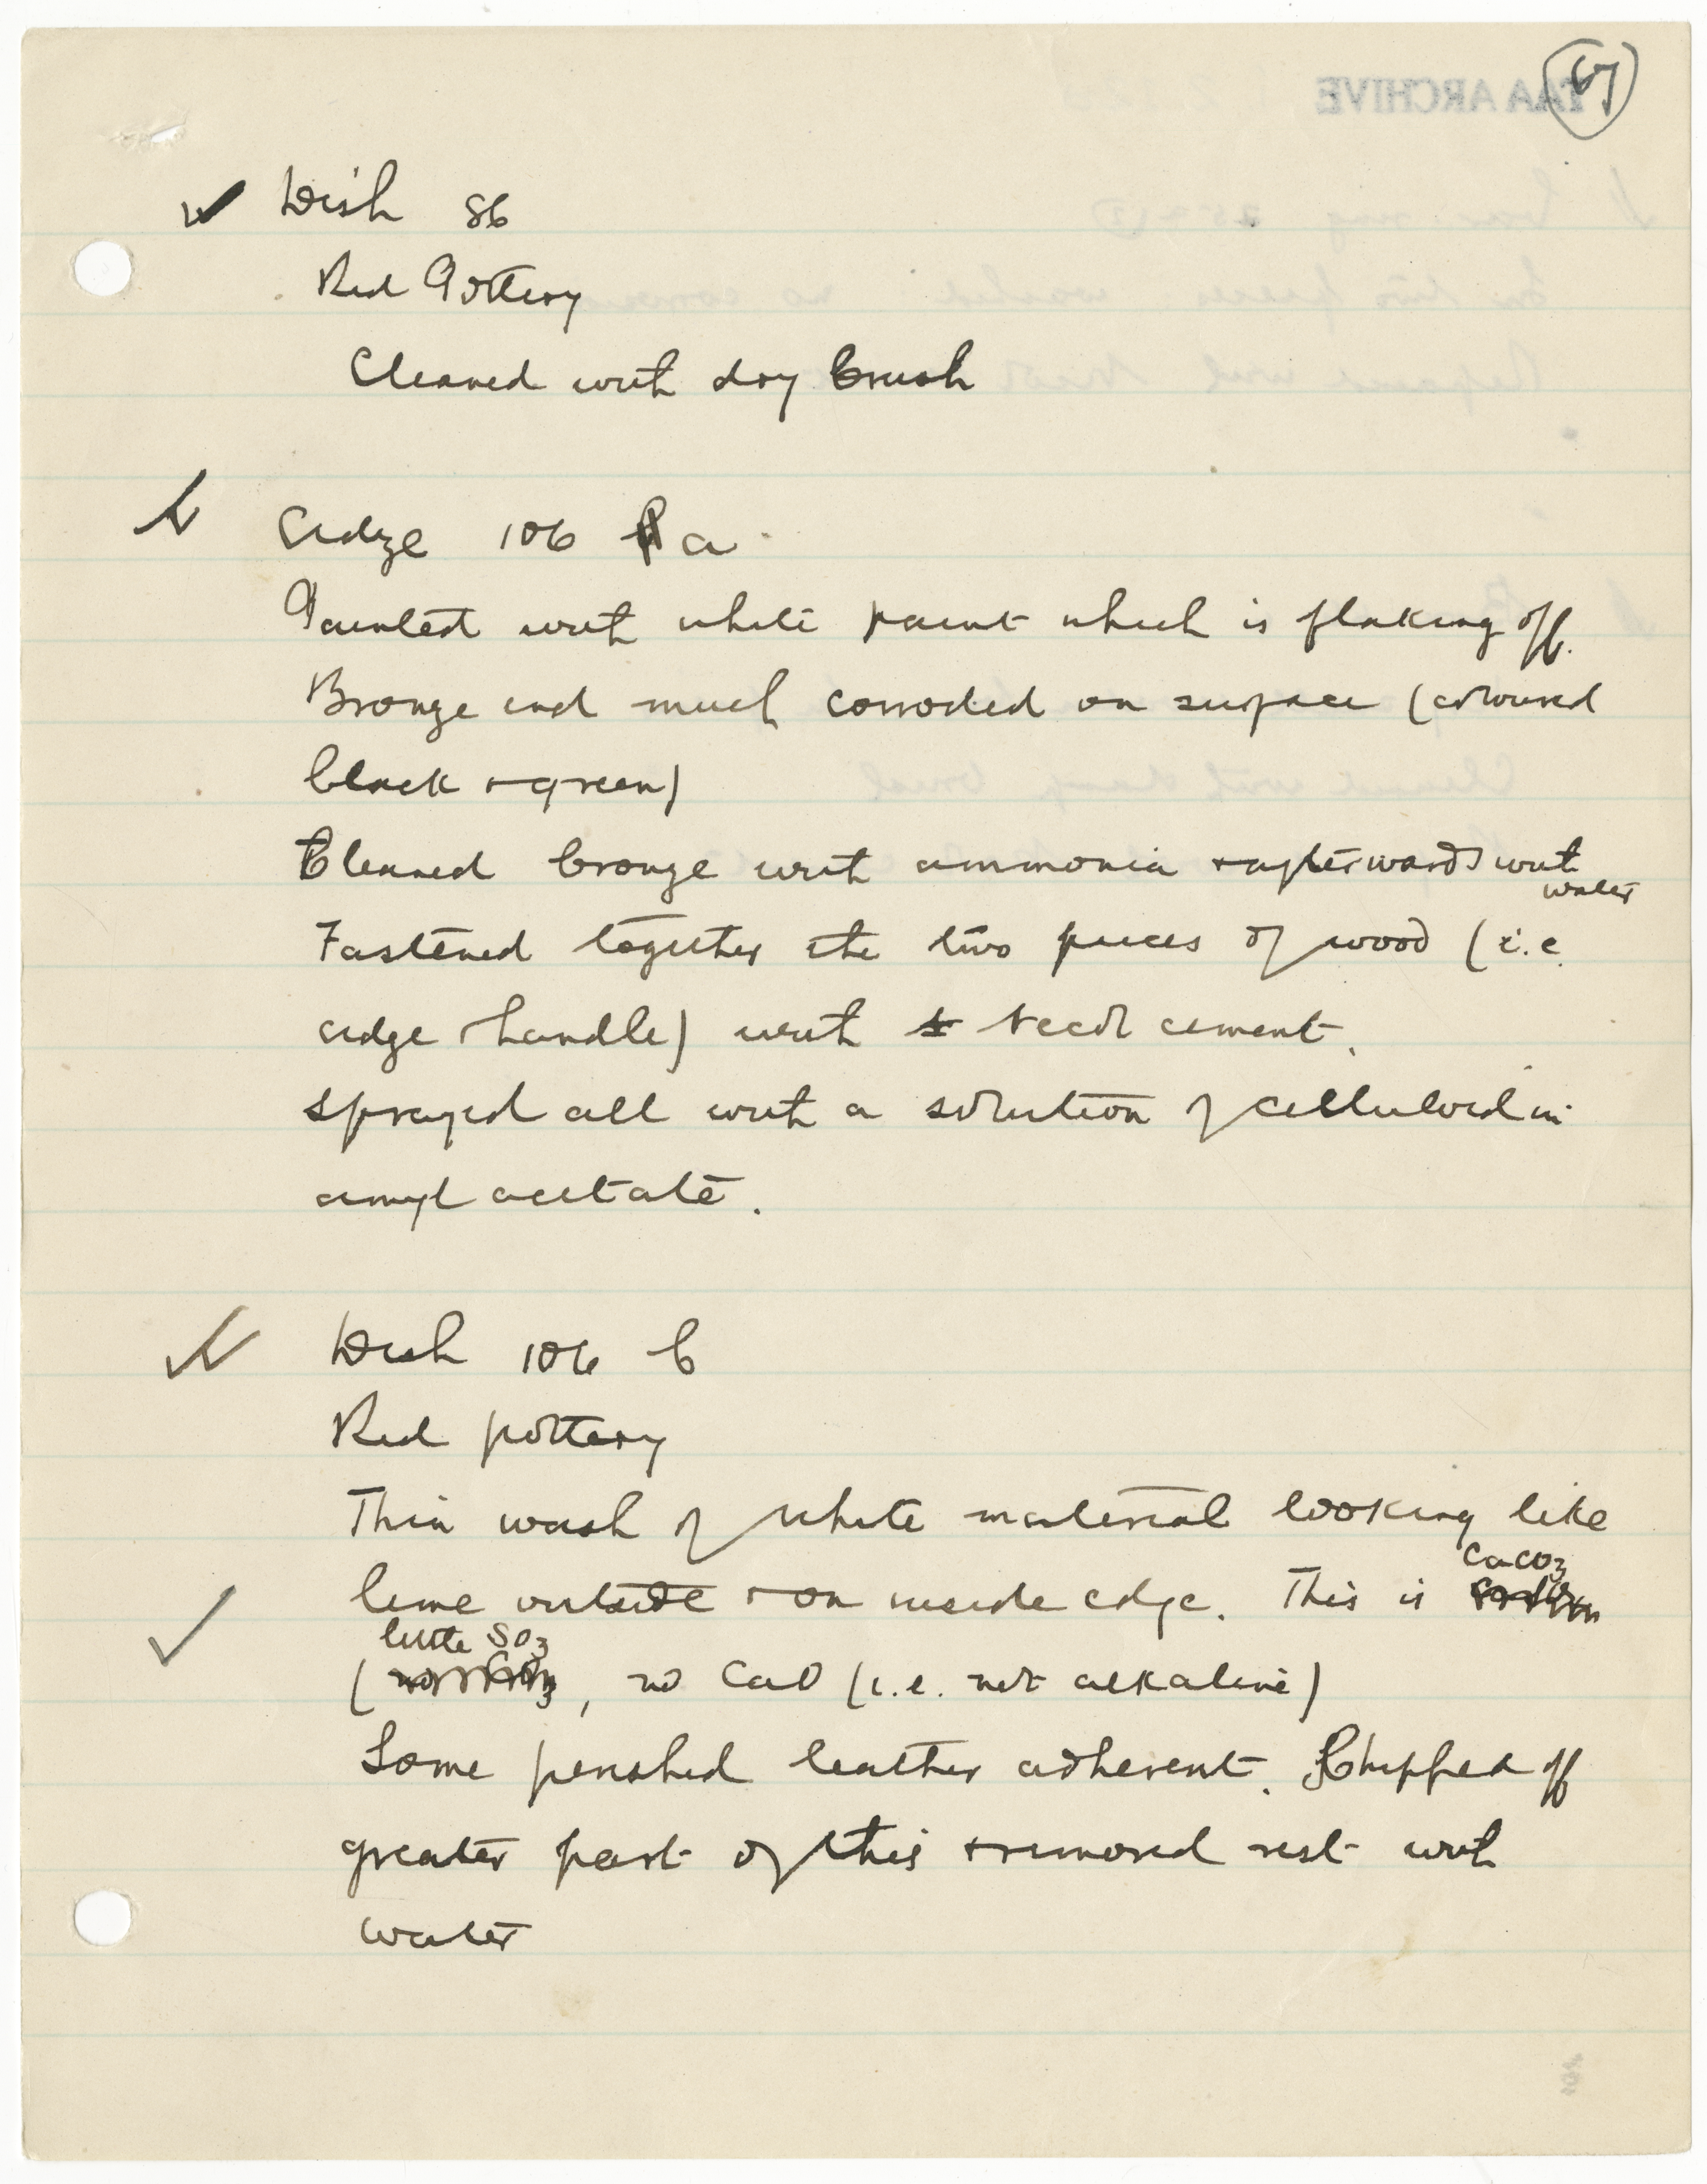 67
TAA ARCHIVE
Dish 86
Red Pottery
Cleaned with dry brush
adze 106 a
Painted with white paint which is flaking off.
Bronze end much corroded on surface (coloured
black + green)
Cleaned bronze with ammonia + afterwards with
water
Fastened together the two pieces of wood (i.e.
adze + handle) with necol cement.
Sprayed all with a solution of celluloid in
amyl acetate.
Dish 106 b
Red pottery
Thin wash of white material looking like
lime outside + on inside edge. This is CaCO3
(little SO3, no CaO (i.e. not alkaline)
Some perished leather adherent. Chipped off
greater part of this + removed rest with
water